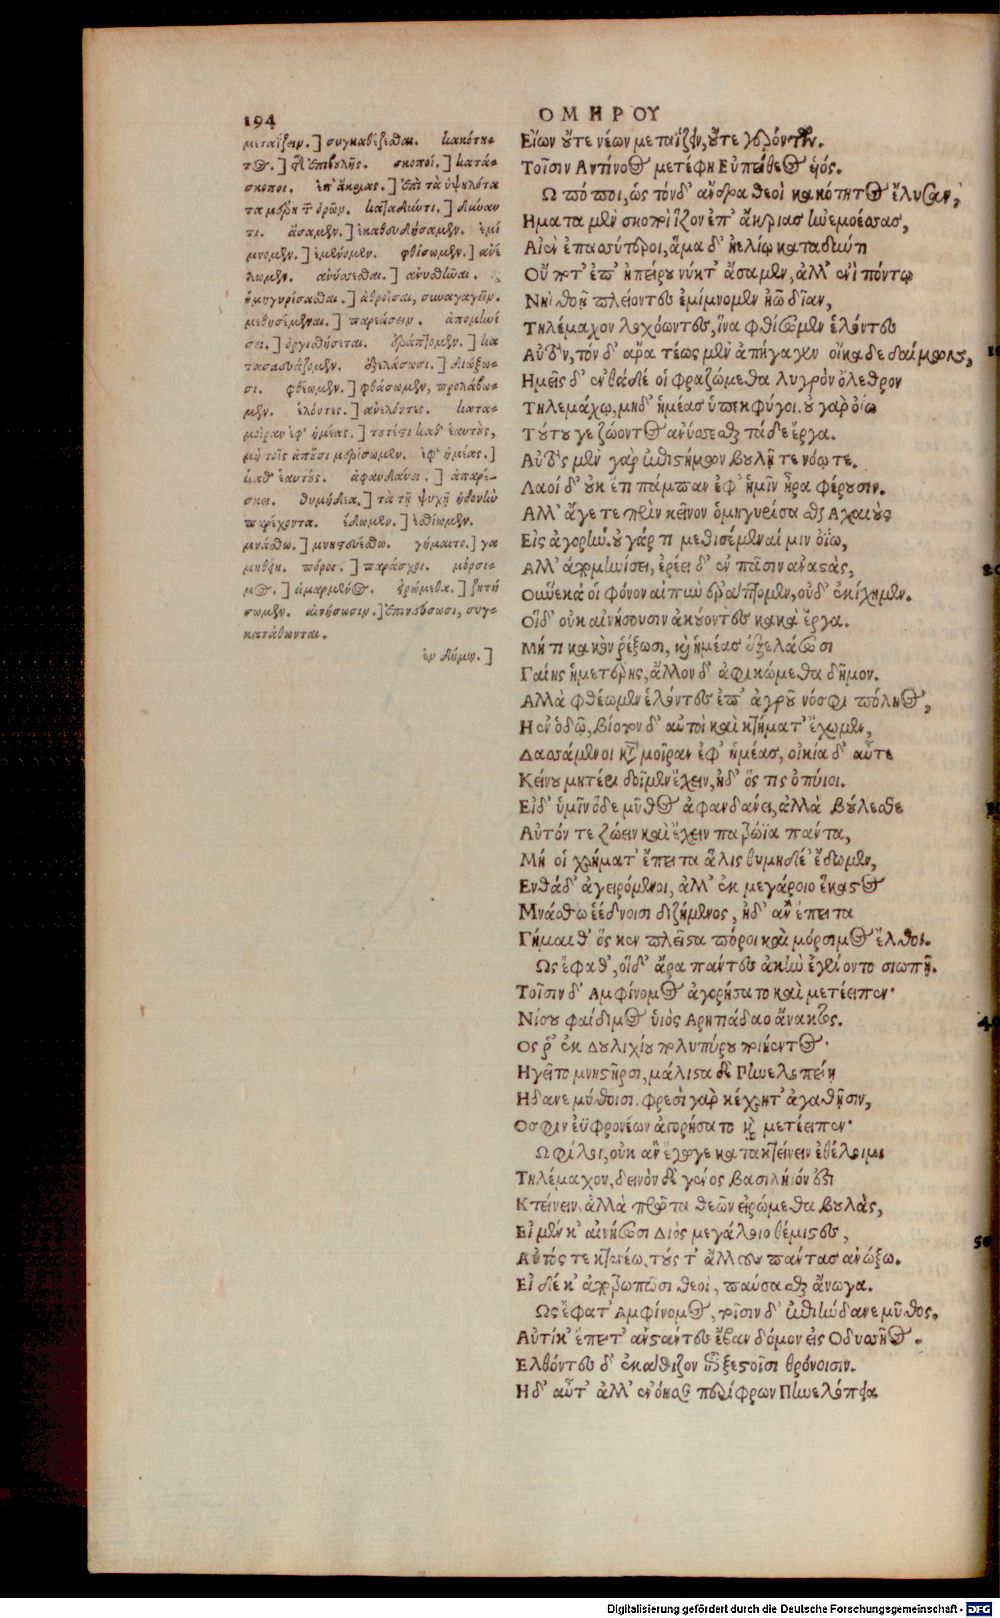 194
ΟΜΗΡΟΥ
μεταΐζειν.] συγκαθέζεσθαι. κακότη-
τος.] τῆς ἐπιβουλῆς. σκοποί.] κατά-
σκοποι. ἐπ' ἄκριας.] ἐπὶ τὰ ὑψηλότα
τα μέρη τῶν ὀρῶν. καταδιώτι.] δύναν
τι. ἄσαμεν.] ἐκαθευδήσαμεν. ἐμί
μνομεν.] ἐμένομεν. φθίσωμεν.] ἀνέ
λωμεν. ἀνύσεσθαι.] ἀνυσθῆναι.
ὁμηγυρίσασθαι.] ἀθροῖσαι, συναγαγεῖν.
μεθησέμεναι.] παρεάσειν. ἀπομηνί
σει.] ὀργισθήσεται. ἐράπτομεν.] κα
τασκευάζομεν. ἐξελάσωσι.] διώξω-
σι. φθέωμεν.] φθάσωμεν, προλάβω-
μεν. ἑλόντες.] ἀνελόντες. κατα-
μοῖραν ἐφ' ἡμέας.] τουτέστι καθ' ἑαυτοὺς,
μὴ τοῖς ἀποῦσι μερίσωμεν. ἐφ' ἡμέας.]
καθ' ἑαυτούς. ἀφανδάνει.] ἀπαρέ-
σκει. θυμήδεα.] τὰ τῇ ψυχῇ ἡδονὴν
παρέχοντα. ἔδωμεν.] ἐσθίωμεν.
μνάσθω.] μνηστευέσθω. γήμαιτο.] γα
μηθείη. πόροι.] παράσχοι. μόρσι-
μος.] εἱμαρμένος. εἰρώμεθα.] ζητή
σωμεν. αἰνήσωσιν.] ἐπινεύσωσι, συγ-
κατάθωνται.
ἐν δήμῳ.]
Είων οὔτε νέων μεταΐζειν, οὔτε γερόντων.
Τοῖσιν Αντίνοος μετέφη Εὐπείθεος υἱός.
Ω πόποι, ὡς τόνδ' ἄνδρα θεοὶ κακότητος ἔλυσαν,
Ηματα μὲν σκοποὶ ἷζον ἐπ' ἄκριας ἠνεμοέσσας,
Αἰὲν ἐπασσύτεροι, ἅμα δ' ἠελίῳ καταδιώτι
Οὔ ποτ' ἐπ' ἠπείρου νύκτ' ἄσαμεν, ἀλλ' ἐνὶ πόντῳ
Νηῒ θοῇ πλείοντες ἐμίμνομεν ἠῶ δῖαν,
Τηλέμαχον λοχόωντες, ἵνα φθίσωμεν ἑλόντες
Αὐτόν, τὸν δ' ἄρα τέως μὲν ἀπήγαγεν οἴκαδε δαίμων,
Ημεῖς δ' ἐνθάδέ οἱ φραζώμεθα λυγρὸν ὄλεθρον
Τηλεμάχῳ, μηδ' ἡμέας ὑπεκφύγοι. οὐ γὰρ ὀΐω
Τούτου γε ζώοντος ἀνύσσεσθαι τάδε ἔργα.
Αὐτὸς μὲν γὰρ ἐπιστήμων βουλῇ τε νόῳ τε.
Λαοὶ δ' οὐκ ἔτι πάμπαν ἐφ' ἡμῖν ἦρα φέρουσιν.
Αλλ' ἄγετε πρὶν κεῖνον ὁμηγυρίσασθαι Αχαιοὺς
Εἰς ἀγορήν. οὐ γάρ τι μεθησέμεναί μιν ὀΐω,
Αλλ' ἀπομηνίσει, ἐρέει δ' ἐν πᾶσιν ἀναστὰς,
Οὕνεκά οἱ φόνον αἰπὺν ἐράπτομεν, οὐδ' ἐκίχημεν.
Οἱ δ' οὐκ αἰνήσουσιν ἀκούοντες κακὰ ἔργα.
Μή τι κακὸν ῥέξωσι, καὶ ἡμέας ἐξελάσωσι
Γαίης ἡμετέρης, ἄλλον δ' ἀφικώμεθα δῆμον.
Αλλὰ φθέωμεν ἑλόντες ἐπ' ἀγροῦ νόσφι πόληος,
Η ἐν ὁδῷ, βίοτον δ' αὐτοὶ καὶ κτήματ' ἔχωμεν,
Δασσάμενοι κατὰ μοῖραν ἐφ' ἡμέας, οἰκία δ' αὖτε
Κείνου μητέρι δοῖμεν ἔχειν, ἠδ' ὅς τις ὀπύιοι.
Εἰ δ' ὑμῖν ὅδε μῦθος ἀφανδάνει, ἀλλὰ βούλεσθε
Αὐτόν τε ζώειν καὶ ἔχειν πατρώϊα πάντα,
Μή οἱ χρήματ' ἔπειτα ἅλις θυμηδέ' ἔδωμεν,
Ενθάδ' ἀγειρόμενοι, ἀλλ' ἐκ μεγάροιο ἕκαστος
Μνάσθω ἑέδνοισι διζήμενος, ἠδ' ἂν ἔπειτα
Γήμαιθ' ὅς κεν πλεῖστα πόροι καὶ μόρσιμος ἔλθοι.
Ως ἔφαθ', οἱ δ' ἄρα πάντες ἀκὴν ἐγένοντο σιωπῇ.
Τοῖσιν δ' Αμφίνομος ἀγορήσατο καὶ μετέειπεν·
Νίσου φαίδιμος υἱὸς Αρητιάδαο ἄνακτος.
Ος ῥ' ἐκ Δουλιχίου πολυπύρου ποιήεντος·
Ηγεῖτο μνηστῆρσι, μάλιστα δὲ Πηνελοπείῃ
Ηδανε μύθοισι. φρεσὶ γὰρ κέχρητ' ἀγαθῇσιν,
Ο σφιν ἐϋφρονέων ἀγορήσατο καὶ μετέειπεν·
Ω φίλοι, οὐκ ἂν ἔγωγε κατακτείνειν ἐθέλοιμι
Τηλέμαχον, δεινὸν δὲ γένος βασιλήϊόν ἐστι
Κτείνειν, ἀλλὰ πρῶτα θεῶν εἰρώμεθα βουλὰς,
Εἰ μέν κ' αἰνήσωσι Διὸς μεγάλοιο θέμιστες,
Αὐτός τε κτενέω, τούς τ' ἄλλους πάντας ἀνώξω.
Εἰ δέ κ' ἀποτρωπῶσι θεοὶ, παύσασθαι ἄνωγα.
Ως ἔφατ' Αμφίνομος, τοῖσιν δ' ἐπιήνδανε μῦθος.
Αὐτίκ' ἔπειτ' ἀνστάντες ἔβαν δόμον εἰς Οδυσῆος.
Ελθόντες δ' ἐκάθιζον ἐπὶ ξεστοῖσι θρόνοισιν.
Η δ' αὖτ' ἄλλ' ἐνόησε περίφρων Πηνελόπεια
Digitalisierung gefördert durch die Deutsche Forschungsgemeinschaft - DFG